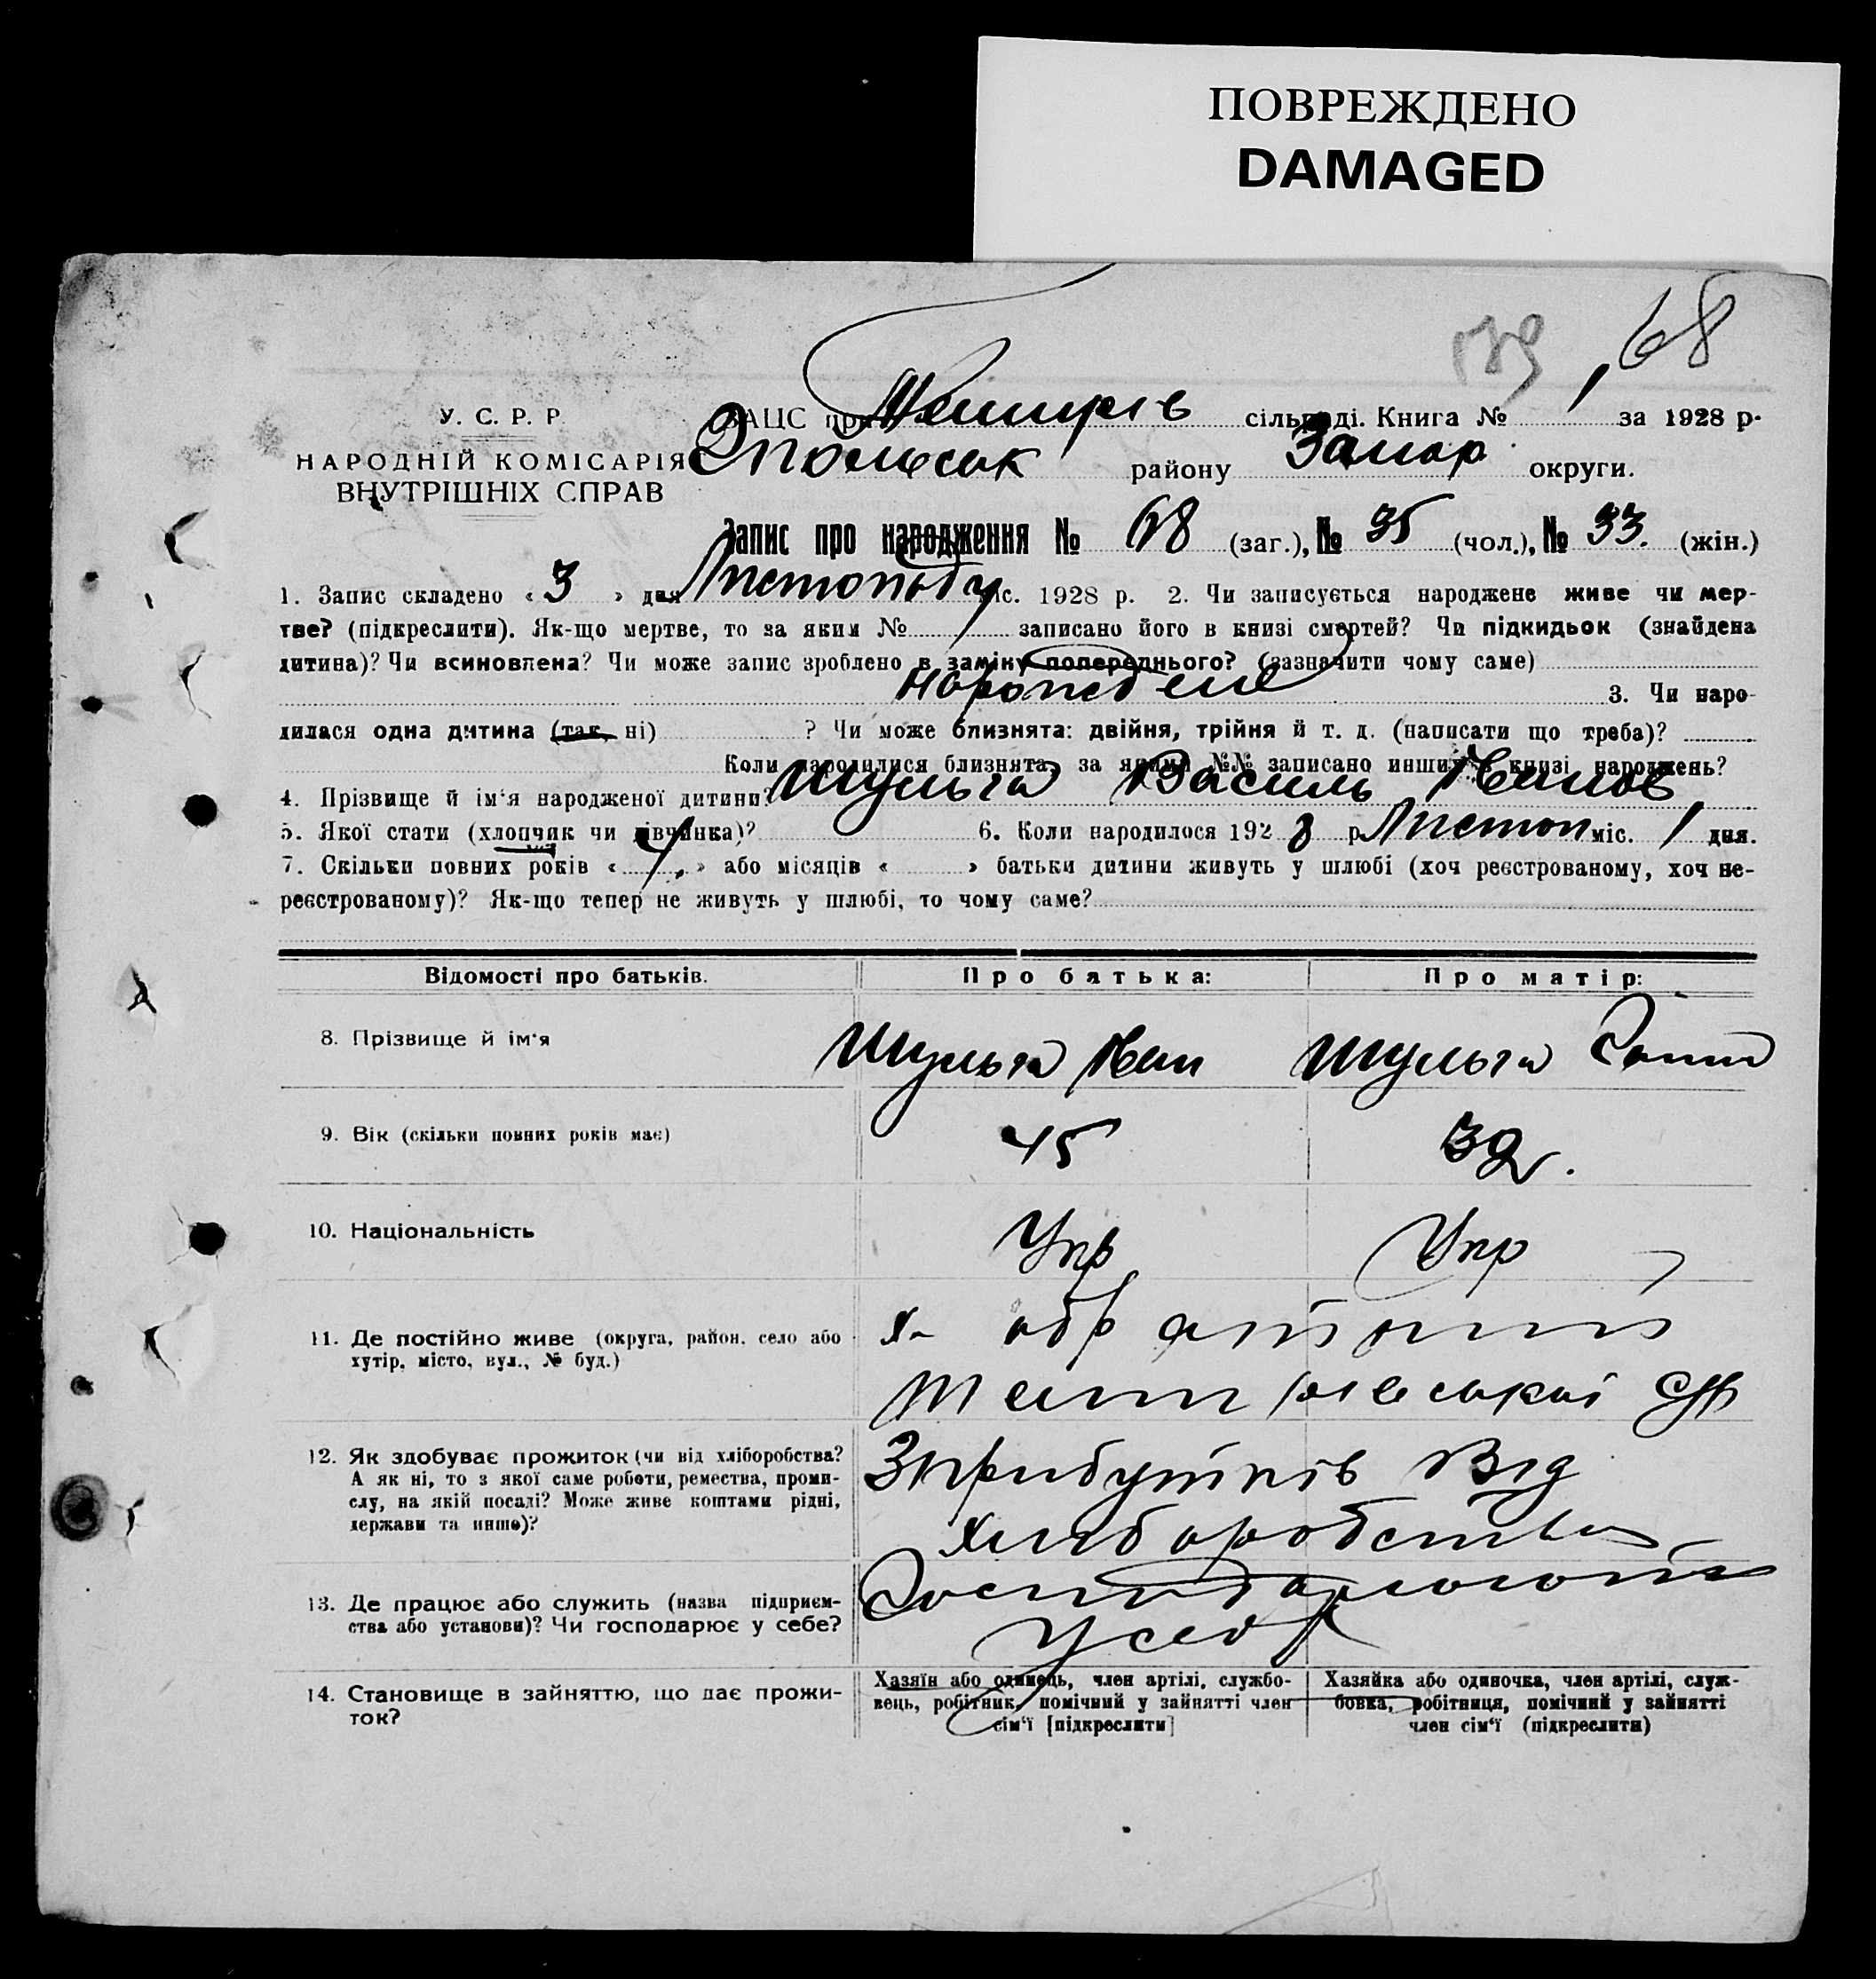 ПОВРЕЖДЕНО
DAMAGED
68
У. С. Р. Р.
НАРОДНІЙ КОМІСАРІЯ
ВНУТРІШНІХ СПРАВ
ЗАЦС при сільраді. Книга № 1 за 1928 р.
району Запор округи.
Запис про народження № 68 (заг.), № 35 (чол.), № 33. (жін.)
1. Запис складено « 3 » дня Листопаду міс. 1928 р. 2. Чи записується народжене живе чи мер-
тве? (підкреслити). Як-що мертве, то за яким № записано його в книзі смертей? Чи підкидьок (знайдена
дитина)? Чи всиновлена? Чи може запис зроблено в заміну попереднього? (зазначити чому саме)
3. Чи наро-
дилася одна дитина (так, ні) ? Чи може близнята: двійня, трійня й т. д. (написати що треба)?
Коли народилися близнята, за якими №№ записано инших в книзі народжень?
4. Прізвище й ім'я народженої дитини? Шульга Василь Иванов
5. Якої стати (хлопчик чи дівчинка)? 6. Коли народилося 1928 р. Листоп міс. 1 дня.
7. Скільки повних років « » або місяців « » батьки дитини живуть у шлюбі (хоч реєстрованому, хоч не-
реєстрованому)? Як-що тепер не живуть у шлюбі, то чому саме?
Відомості про батьків. Про батька: Про матір:
8. Прізвище й ім'я Шульга Иван Шульга
9. Вік (скільки повних років має) 45 32.
10. Національність Укр Укр
11. Де постійно живе (округа, район, село або
хутір, місто, вул., № буд.)
12. Як здобуває прожиток (чи від хліборобства? Зприбутків Від
А як ні, то з якої саме роботи, ремества, проми-
слу, на якій посаді? Може живе коштами рідні, хліборобства
держави та инше)?
13. Де працює або служить (назва підприєм-
ства або установи)? Чи господарює у себе? Усебе
14. Становище в зайняттю, що дає прожи-
ток?
Хазяїн або одинець, член артілі, службо-
вець, робітник, помічний у зайнятті член
сім'ї [підкреслити]
Хазяйка або одиночка, член артілі, служ-
бовка, робітниця, помічний у зайнятті
член сім'ї (підкреслити)